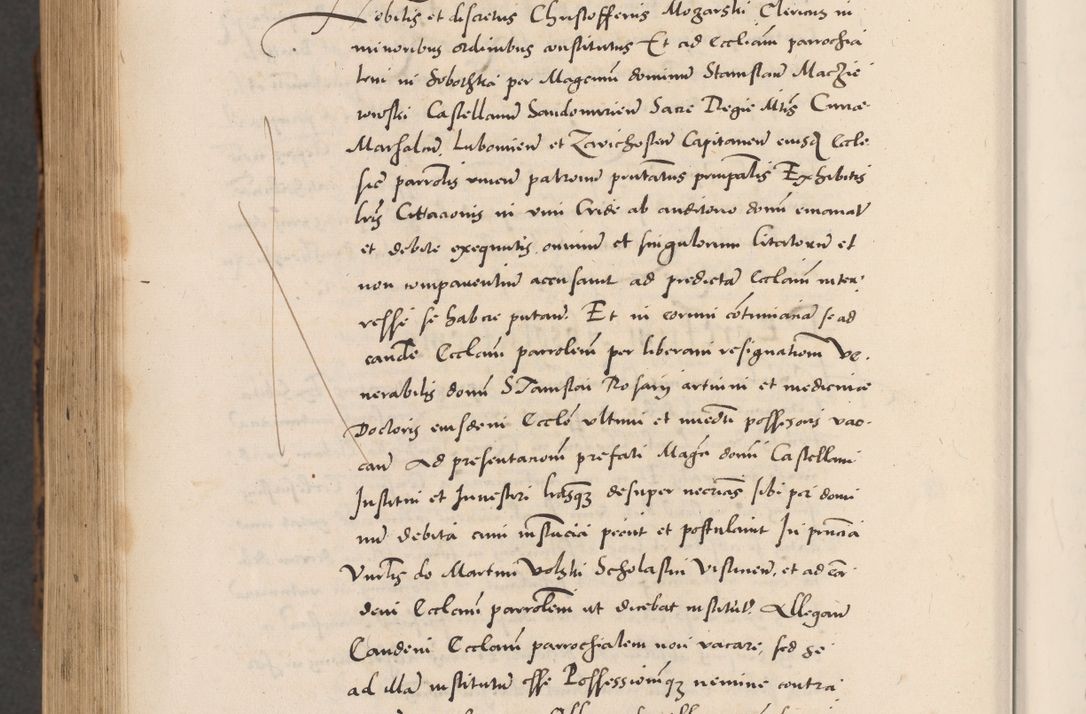 Nobilis et discretus Christofferus Mozarski Clericus in
minoribus ordinibus constitutus Et ad Eccliam parrochia
lem in Sobothka per Magcum dominum Stanislaum Maczie
iowski Castellanum Sandomirien Sacre Regie Mtis Curie
Marschalcum Lubomien et Zavichosten Capitaneum eiusdem Eccle
sie parrolis unicum patronum pntatus principalis Exhibitis
lris Citacionis in vim Cride ab auditorio domini emanat
et debite exequutis omnium et singulorum licitatorum et
non comparentium accusavit ad predictam Eccliam inter
resse se habere putan. Et in eorum cotumaciam se ad
eande Eccliam parrolem per liberam resignationem Ve
nerabilis domini Stanislai Rosarii artium et medicine
Doctoris eiusdem Eccle ultimi et immedti possessoris vac
cant Ad presentationem prefati Magci domini Castellani
Institui et Investiri lrasque desuper necrias sibi per domi
num debita cum instancia peciit et postulavit In pntia
Vnrlis do Martini Volski Scholastici Vislicien, et ad ean
dem Eccliam parrolem ut dicebat instituti. Allegan
Eandem Eccliam parrochialem non vacare, sed se
ad illam institutum esse Possessionemque nemine contra